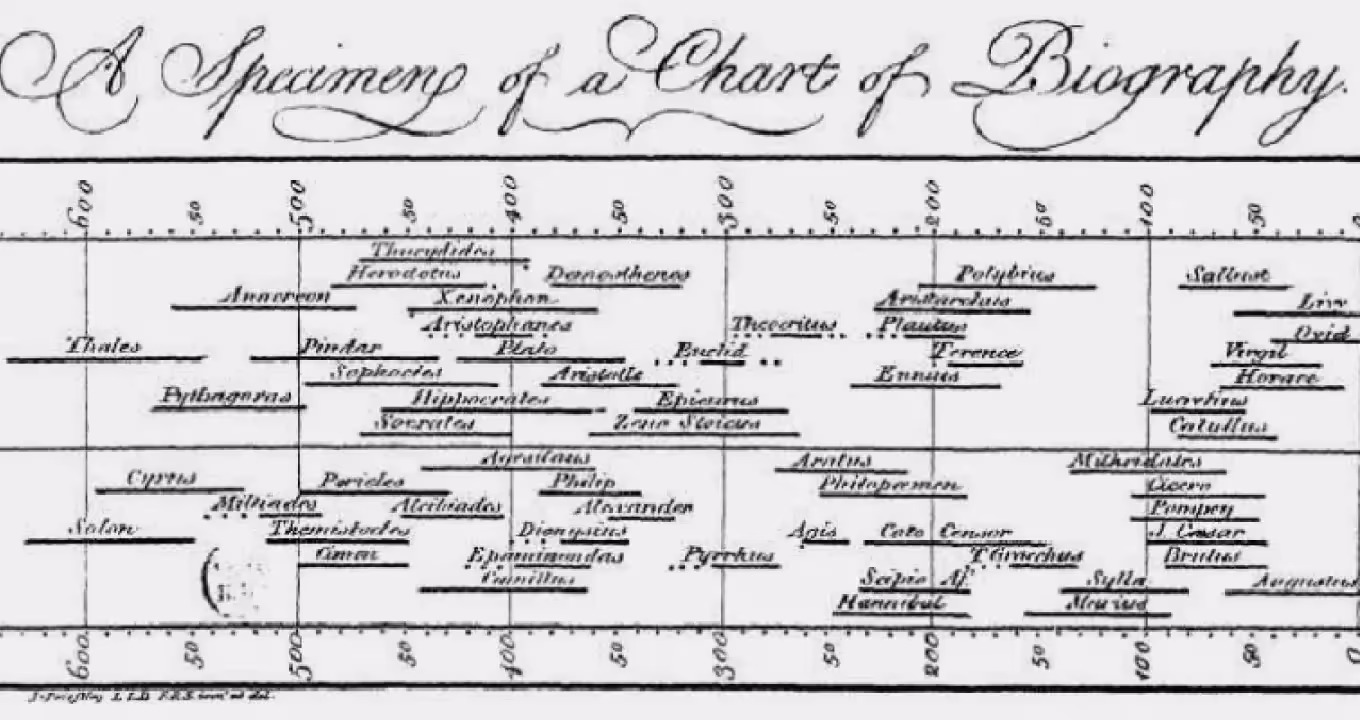 A Specimen of a Chart of Biography.
600 50 500 50 400 50 300 50 200 50 100 50 0
Thucydides
Herodotus Demosthenes Polybius Sallust
Anacreon Xenophon Aristarchus Livy
Aristophanes Theocritus Plautus Ovid
Thales Pindar Plato Euclid Terence Virgil
Sophocles Aristotle Ennius Horace
Pythagoras Hippocrates Epicurus Lucretius
Socrates Zeno Stoicus Catullus
Agesilaus Aratus Mithridates
Cyrus Pericles Philip Philopœmen Cicero
Miltiades Alcibiades Alexander Pompey
Solon Themistocles Dionysius Agis Cato Censor J. Cæsar
Cimon Epaminondas Pyrrhus T. Gracchus Brutus
Camillus Scipio Af. Sylla Augustus
Hannibal Marius
600 50 500 50 400 50 300 50 200 50 100 50 0
L.L.D. F.R.S.